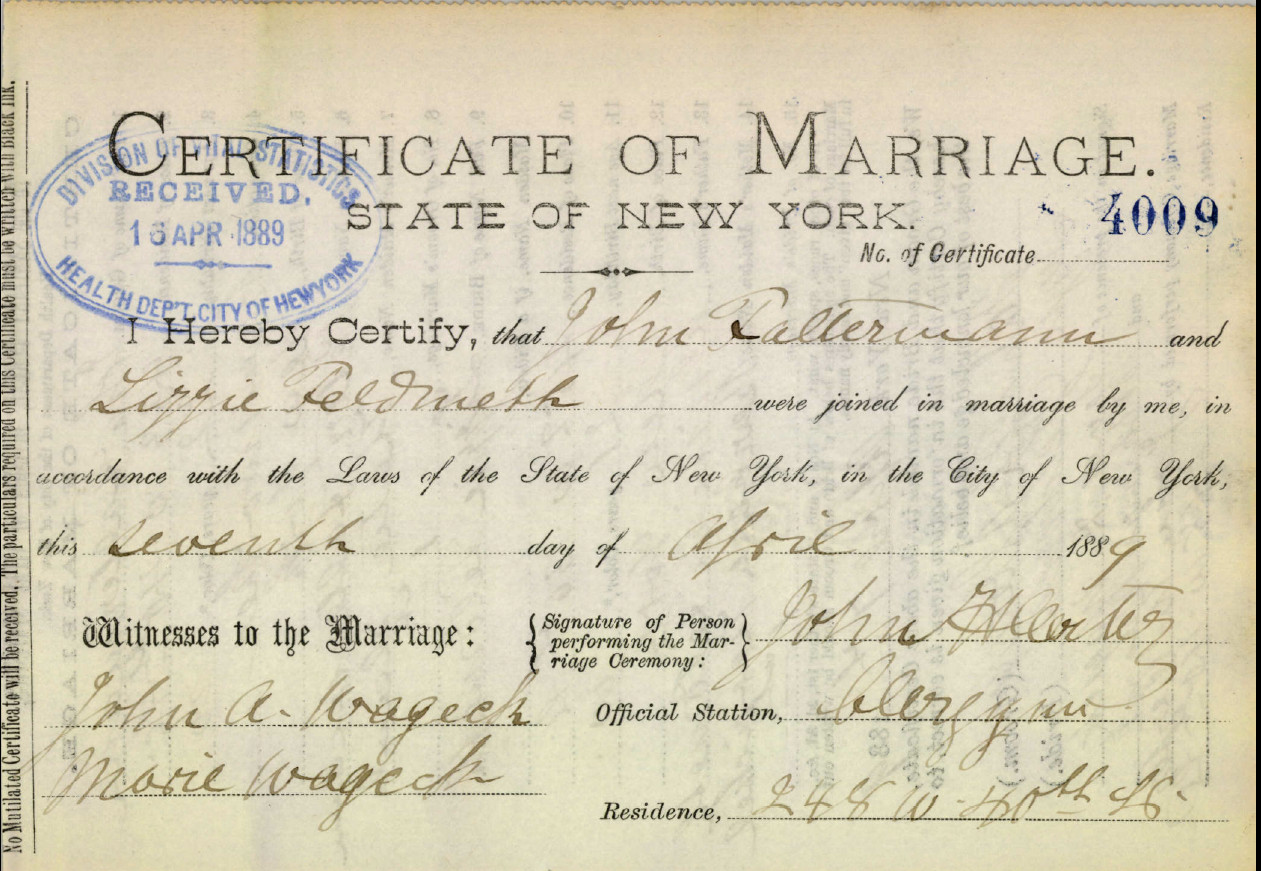 No Mutilated Certificate will be received. The particulars required on this Certificate must be written with Black Ink.
CERTIFICATE OF MARRIAGE.
DIVISION OF VITAL STATISTICS
RECEIVED.
16 APR 1889
HEALTH DEP'T. CITY OF NEW YORK
STATE OF NEW YORK.
4009
No. of Certificate
I Hereby Certify, that John Faltermann and
Lizzie Feldmeth were joined in marriage by me, in
accordance with the Laws of the State of New York, in the City of New York,
this seventh day of April 1889
Witnesses to the Marriage:
Signature of Person
performing the Mar-
riage Ceremony:
John
John A. Wageck
Official Station,
Marie Wageck
Residence, 248 W. 40th St.